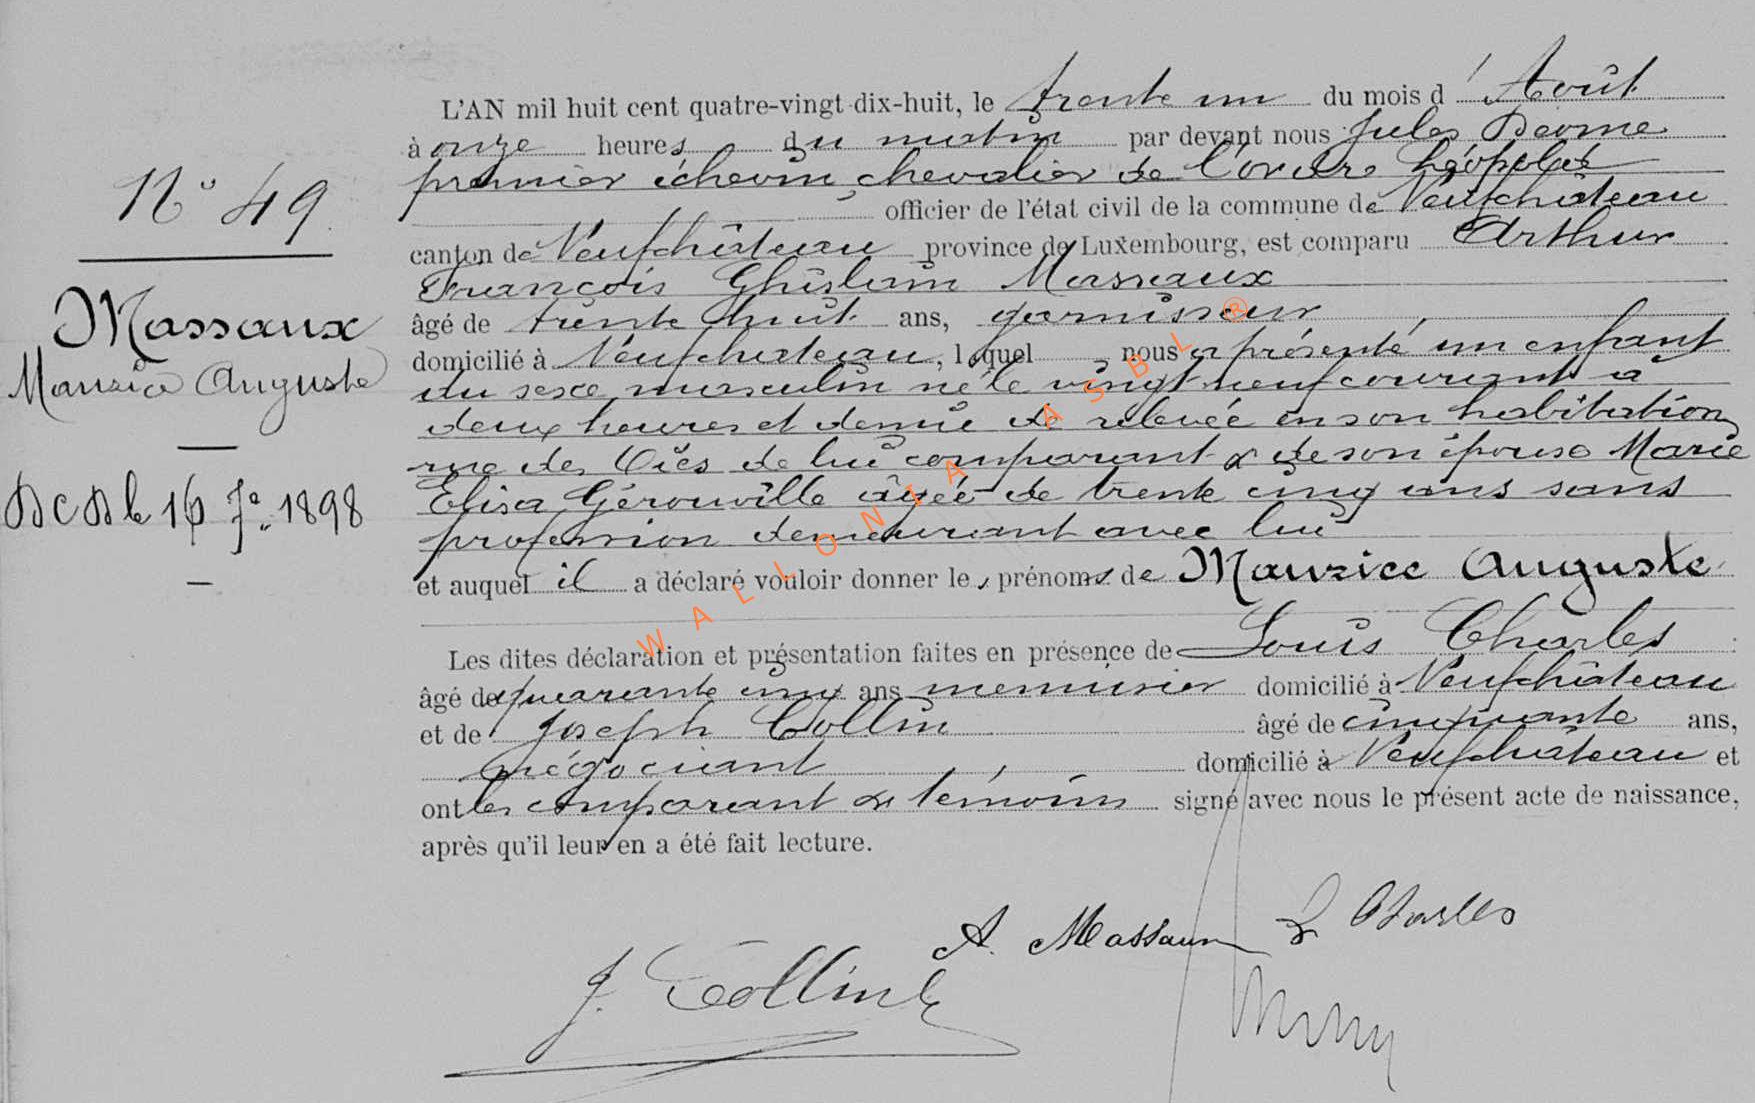 N° 49
Massaux
Maurice Auguste
DCD le 16 7e 1898
L'AN mil huit cent quatre-vingt-dix-huit, le trente un du mois d'Août
à onze heures du matin par devant nous Jules
premier échevin, chevalier de l'ordre Léopold
officier de l'état civil de la commune de Neufchâteau
canton de Neufchâteau province de Luxembourg, est comparu Arthur
François Ghislain Massaux
âgé de trente huit ans, garnisseur
domicilié à Neufchateau, lequel nous a présenté un enfant
du sexe masculin né le vingt neuf courant à
deux heures et demie de relevée en son habitation
rue des de lui comparant & de son épouse Marie
Elisa Gérouville âgée de trente cinq ans sans
profession demeurant avec lui
et auquel il a déclaré vouloir donner les prénoms de Maurice Auguste
Les dites déclaration et présentation faites en présence de Louis Charles
âgé de quarante cinq ans menuisier domicilié à Neufchâteau
et de Joseph Collin âgé de cinquante ans,
négociant domicilié à Neufchâteau et
ont les comparant & témoins signé avec nous le présent acte de naissance,
après qu'il leur en a été fait lecture.
A. Massaux L Charles
J. Collin
WALLONIA ASBL ®